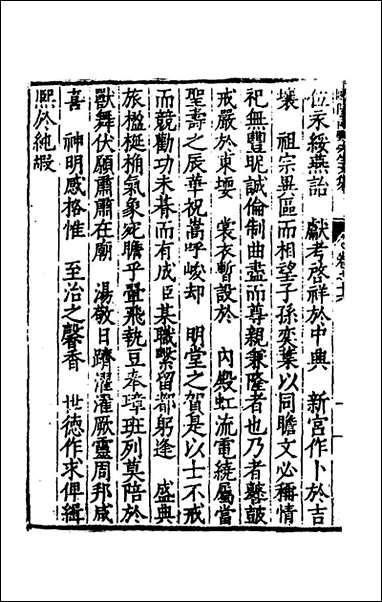 位永綏燕詒　獻考啓祥於中興　新宮作卜於吉
壤　祖宗異區而相望子孫奕葉以同瞻文必稱情
祀無豐昵誠倫制曲盡而尊親兼隆者也乃者鼛鼓
戒嚴於東堧　裳衣暫設於　內殿虹流電繞屬當
聖壽之辰華祝嵩呼峻却　明堂之賀是以士不戒
而競勸功未朞而有成臣某職繫留都躬逢　盛典
旅楹梴桷氣象宛瞻乎翬飛執豆奉璋班列莫陪於
獸舞伏願肅肅在廟　湯敬日躋濯濯厥靈周邦咸
喜　神明感格惟　至治之馨香　世德作求俾緝
熙於純嘏